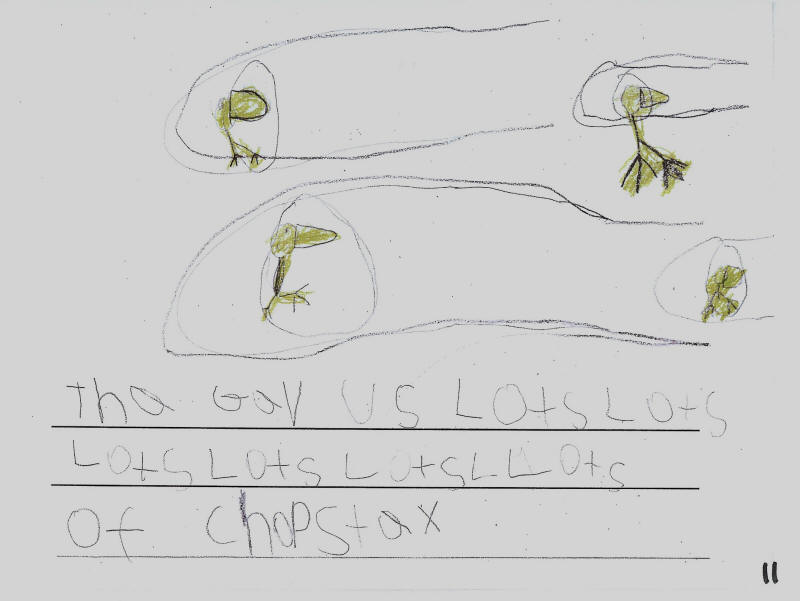 Tha Gav US LOts LOts
LOts LOts LOtsLLOts
Of ChopStax
11